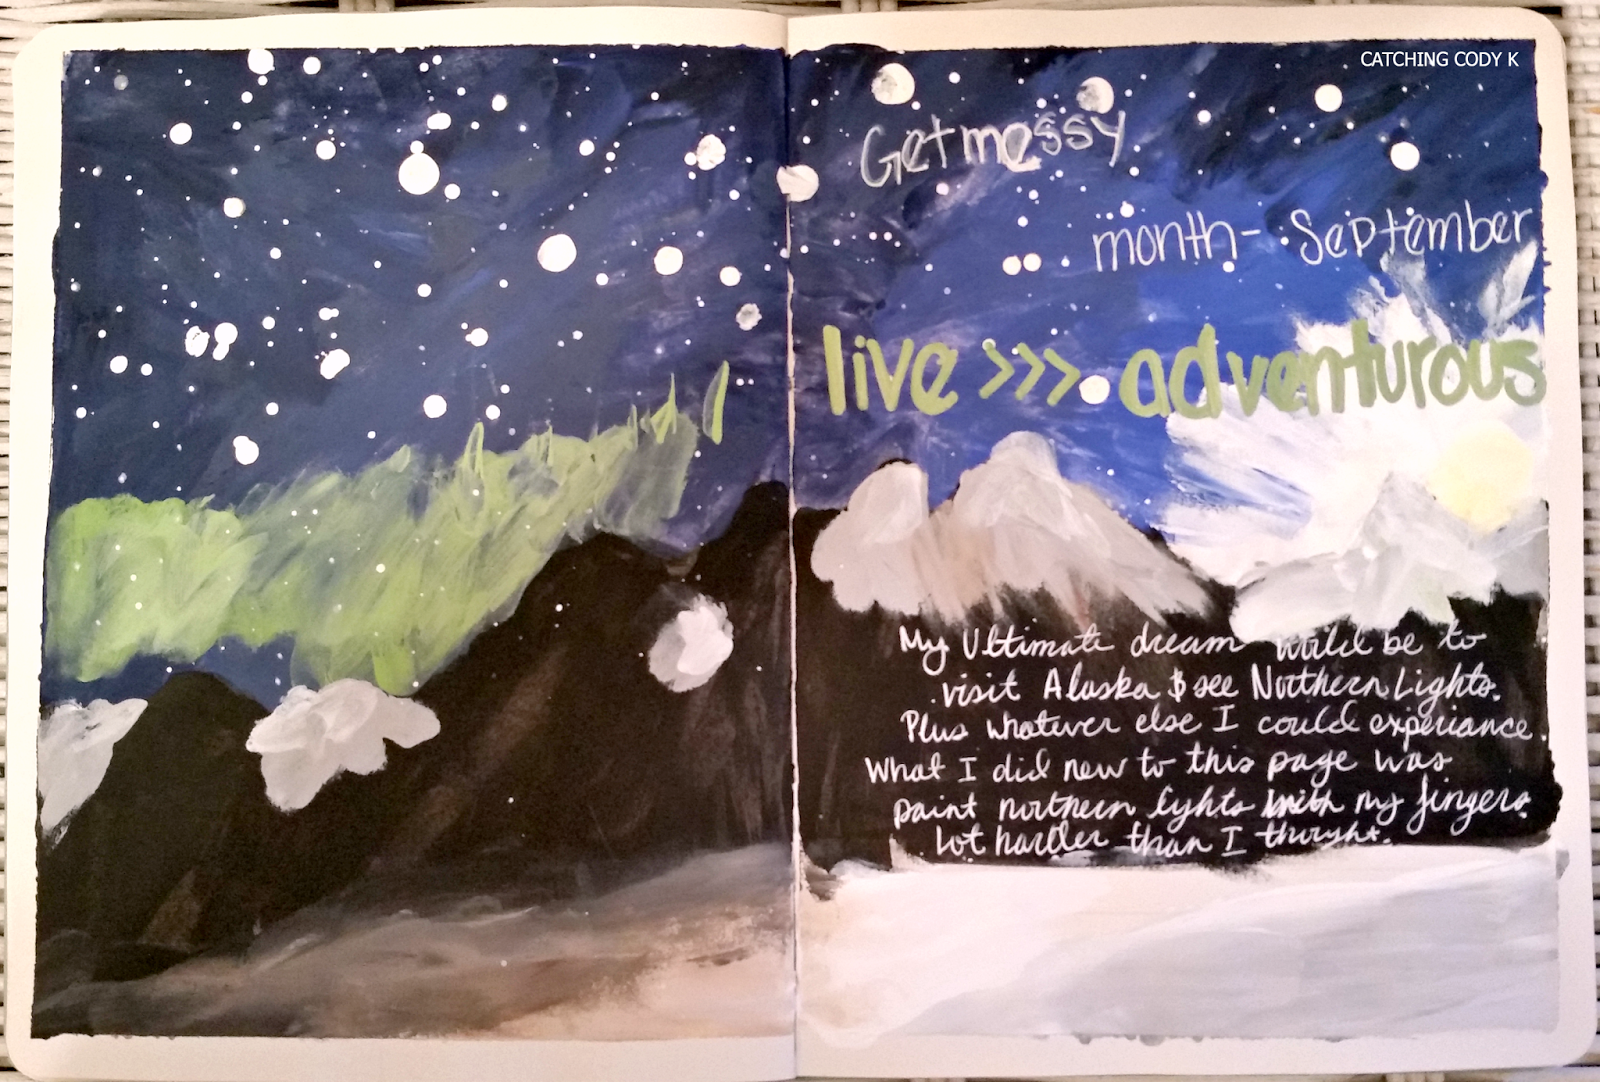 CATCHING CODY K
Get messy
month - September
live >>> adventurous
My Ultimate dream would be to
visit Alaska & see Northern Lights.
Plus whatever else I could experiance.
What I did new to this page was
paint northern lyhts with my fingers.
Lot harder than I thought.